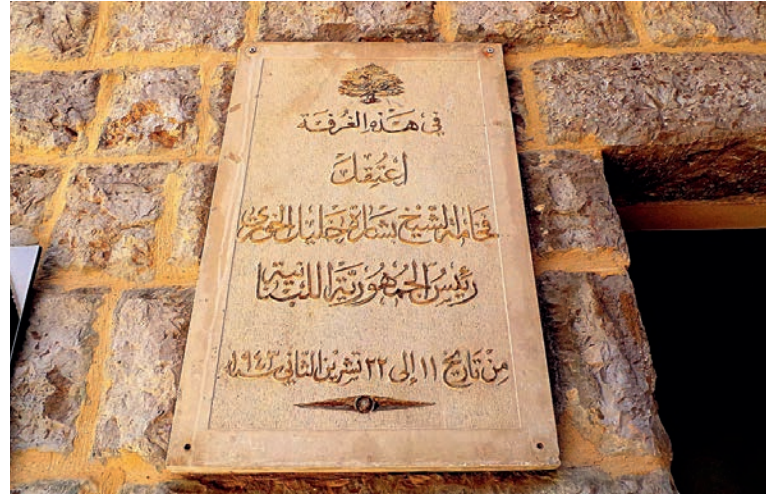 في هَذِهِ الغُرفَة
اعتُقِلَ
فخامة الشيخ بشارة خليل الخوري
رئيسُ الجُمهُوريَّة اللبنَانية
مِن تاريخ ١١ إلى ٢٢ تشرين الثاني سنة ١٩٤٣